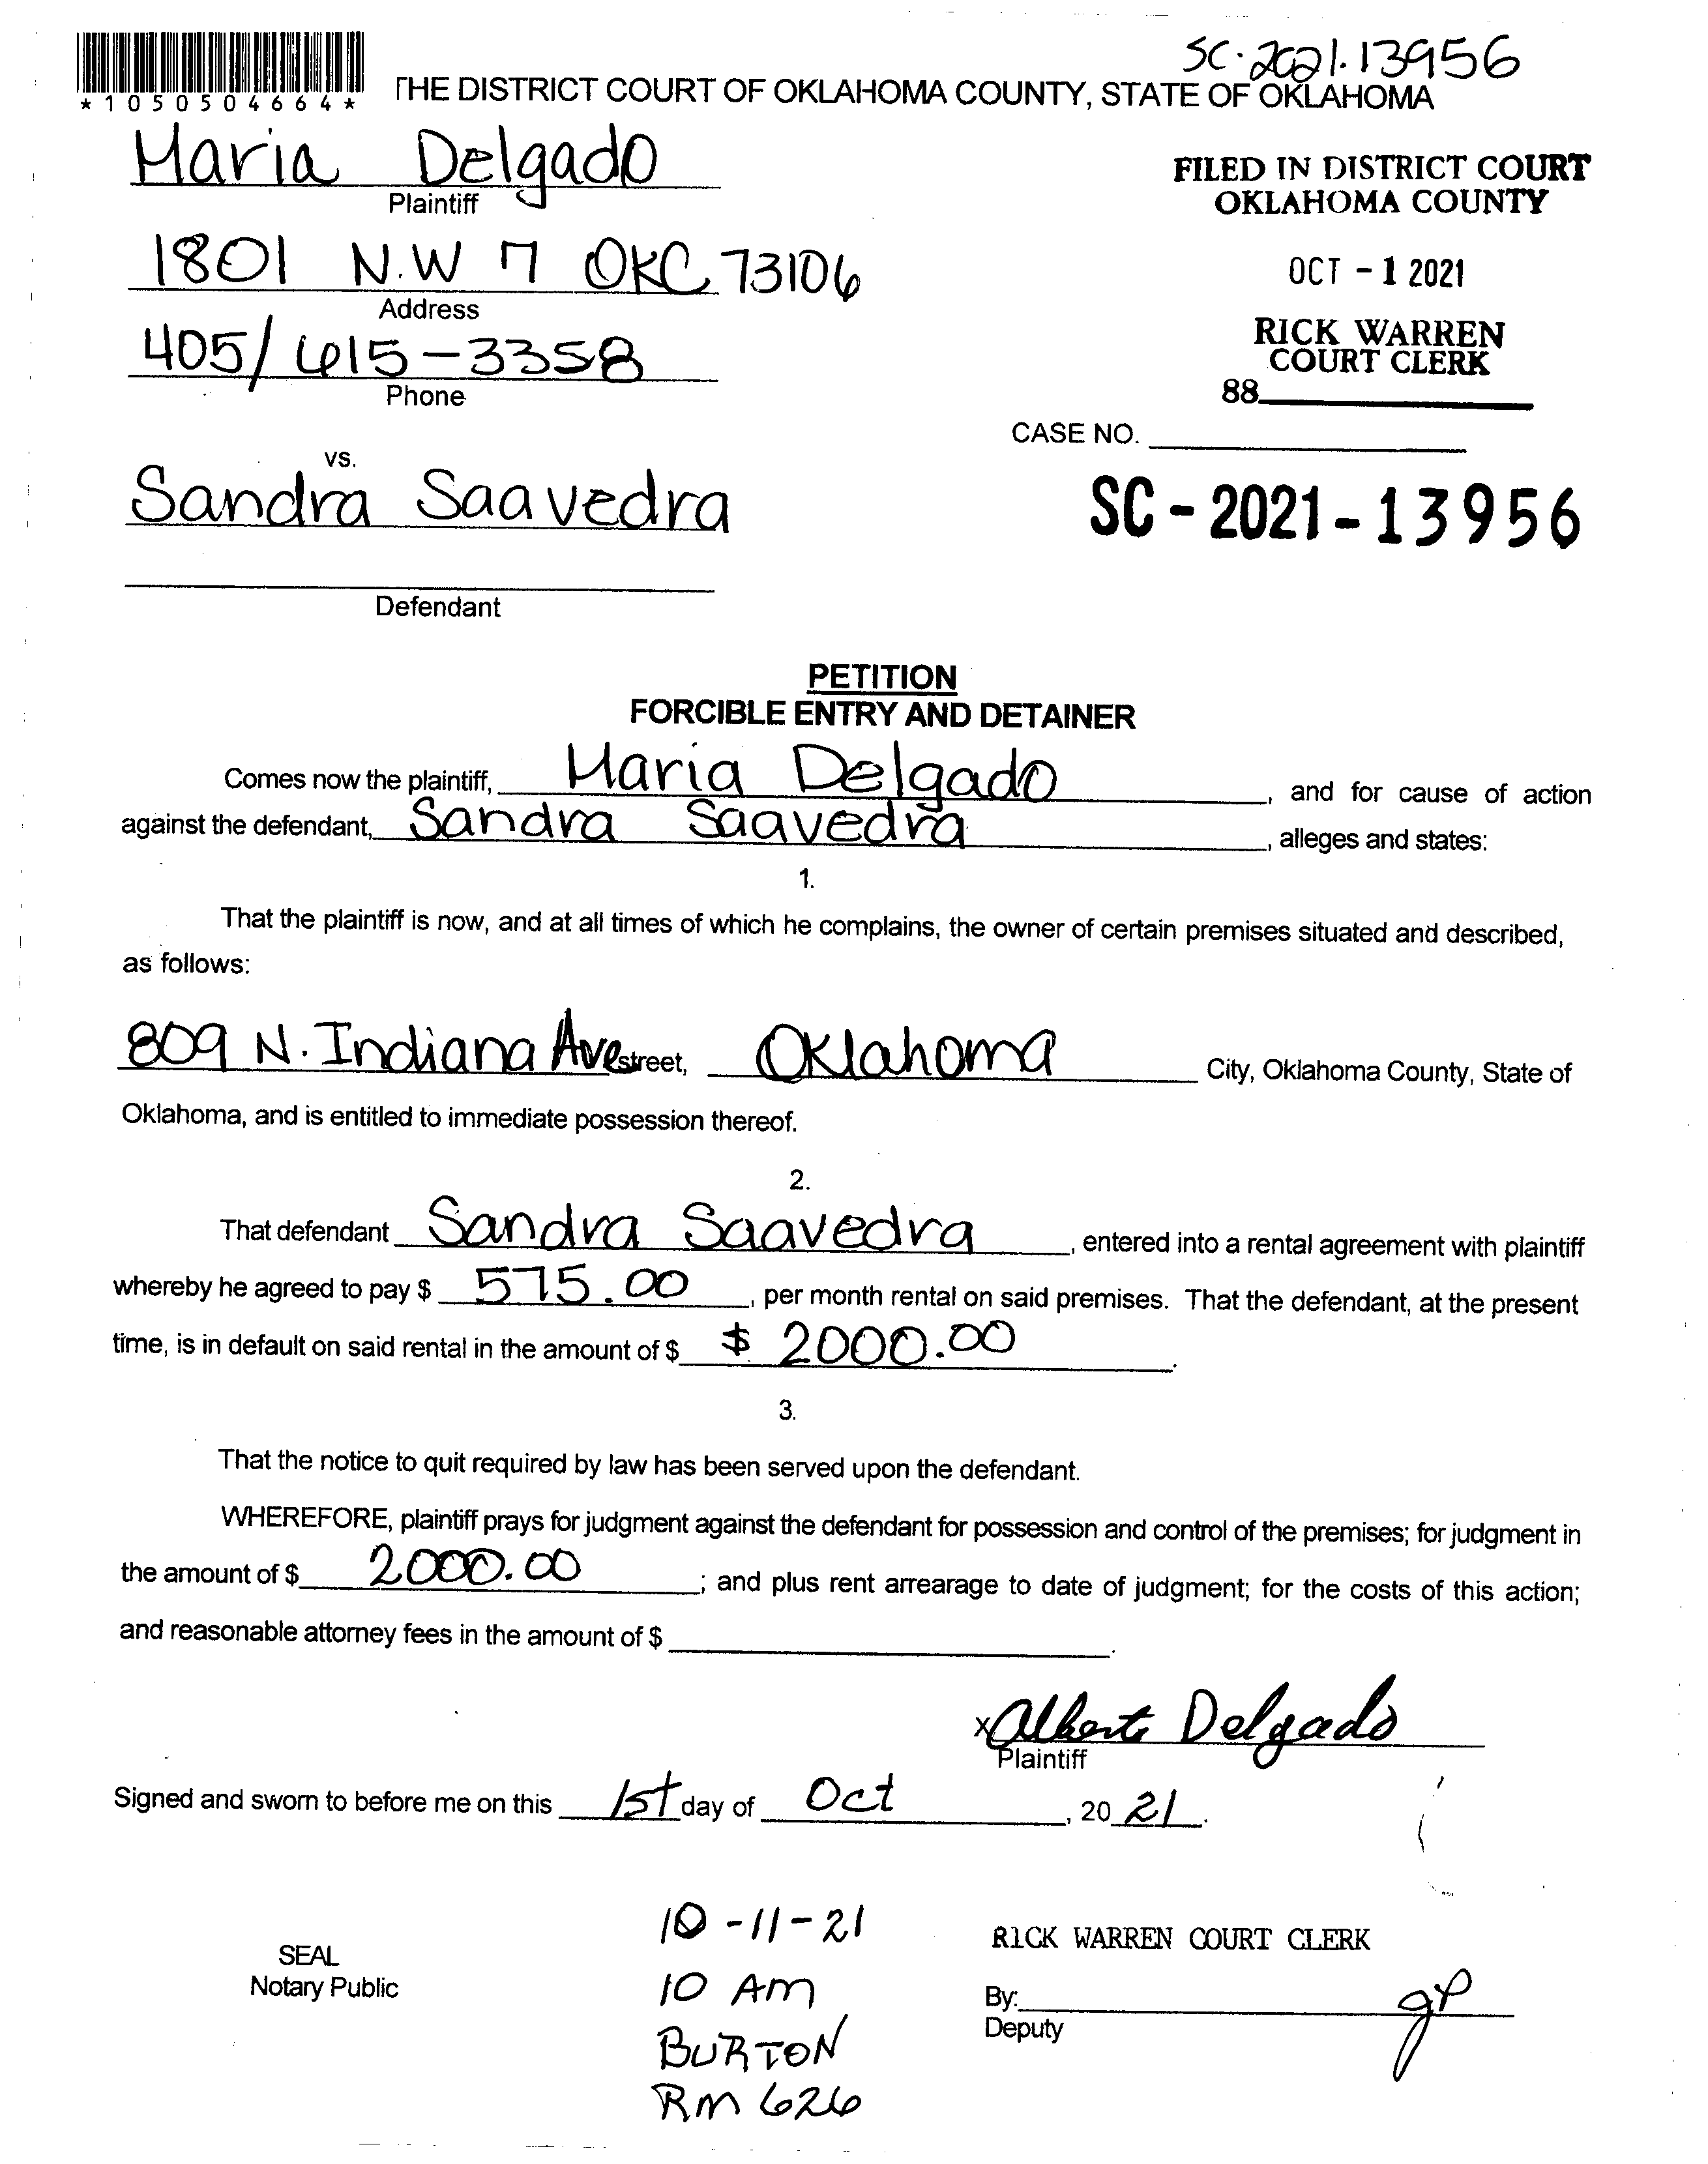 SC-2021-13956
*1050504664*
THE DISTRICT COURT OF OKLAHOMA COUNTY, STATE OF OKLAHOMA
Maria Delgado
Plaintiff
FILED IN DISTRICT COURT
OKLAHOMA COUNTY
1801 N.W 7 OKC 73106
Address
OCT - 1 2021
405/615-3358
Phone
RICK WARREN
COURT CLERK
88
CASE NO.
vs.
Sandra Saavedra
SC-2021-13956
Defendant
PETITION
FORCIBLE ENTRY AND DETAINER
Comes now the plaintiff, Maria Delgado, and for cause of action
against the defendant, Sandra Saavedra, alleges and states:
1.
That the plaintiff is now, and at all times of which he complains, the owner of certain premises situated and described,
as follows:
809 N. Indiana Ave street, Oklahoma City, Oklahoma County, State of
Oklahoma, and is entitled to immediate possession thereof.
2.
That defendant Sandra Saavedra, entered into a rental agreement with plaintiff
whereby he agreed to pay $ 575.00, per month rental on said premises. That the defendant, at the present
time, is in default on said rental in the amount of $ $ 2000.00.
3.
That the notice to quit required by law has been served upon the defendant.
WHEREFORE, plaintiff prays for judgment against the defendant for possession and control of the premises; for judgment in
the amount of $ 2000.00; and plus rent arrearage to date of judgment; for the costs of this action;
and reasonable attorney fees in the amount of $ .
x Alberto Delgado
Plaintiff
Signed and sworn to before me on this 1st day of Oct, 20 21.
10-11-21
10 AM
BURTON
RM 626
SEAL
Notary Public
RICK WARREN COURT CLERK
By: gp
Deputy